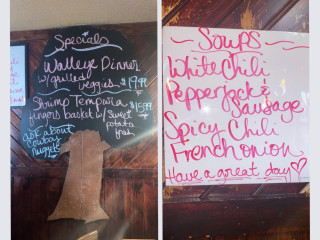 Specials
Walleye Dinner
w/grilled
veggies $19.99
Shrimp Tempura
fingers basket w/Sweet $15.99
potato
fries
ask about
Cowboy
nuggets
Soups
White Chili
Pepperjack &
Sausage
Spicy Chili
French onion
Have a great day